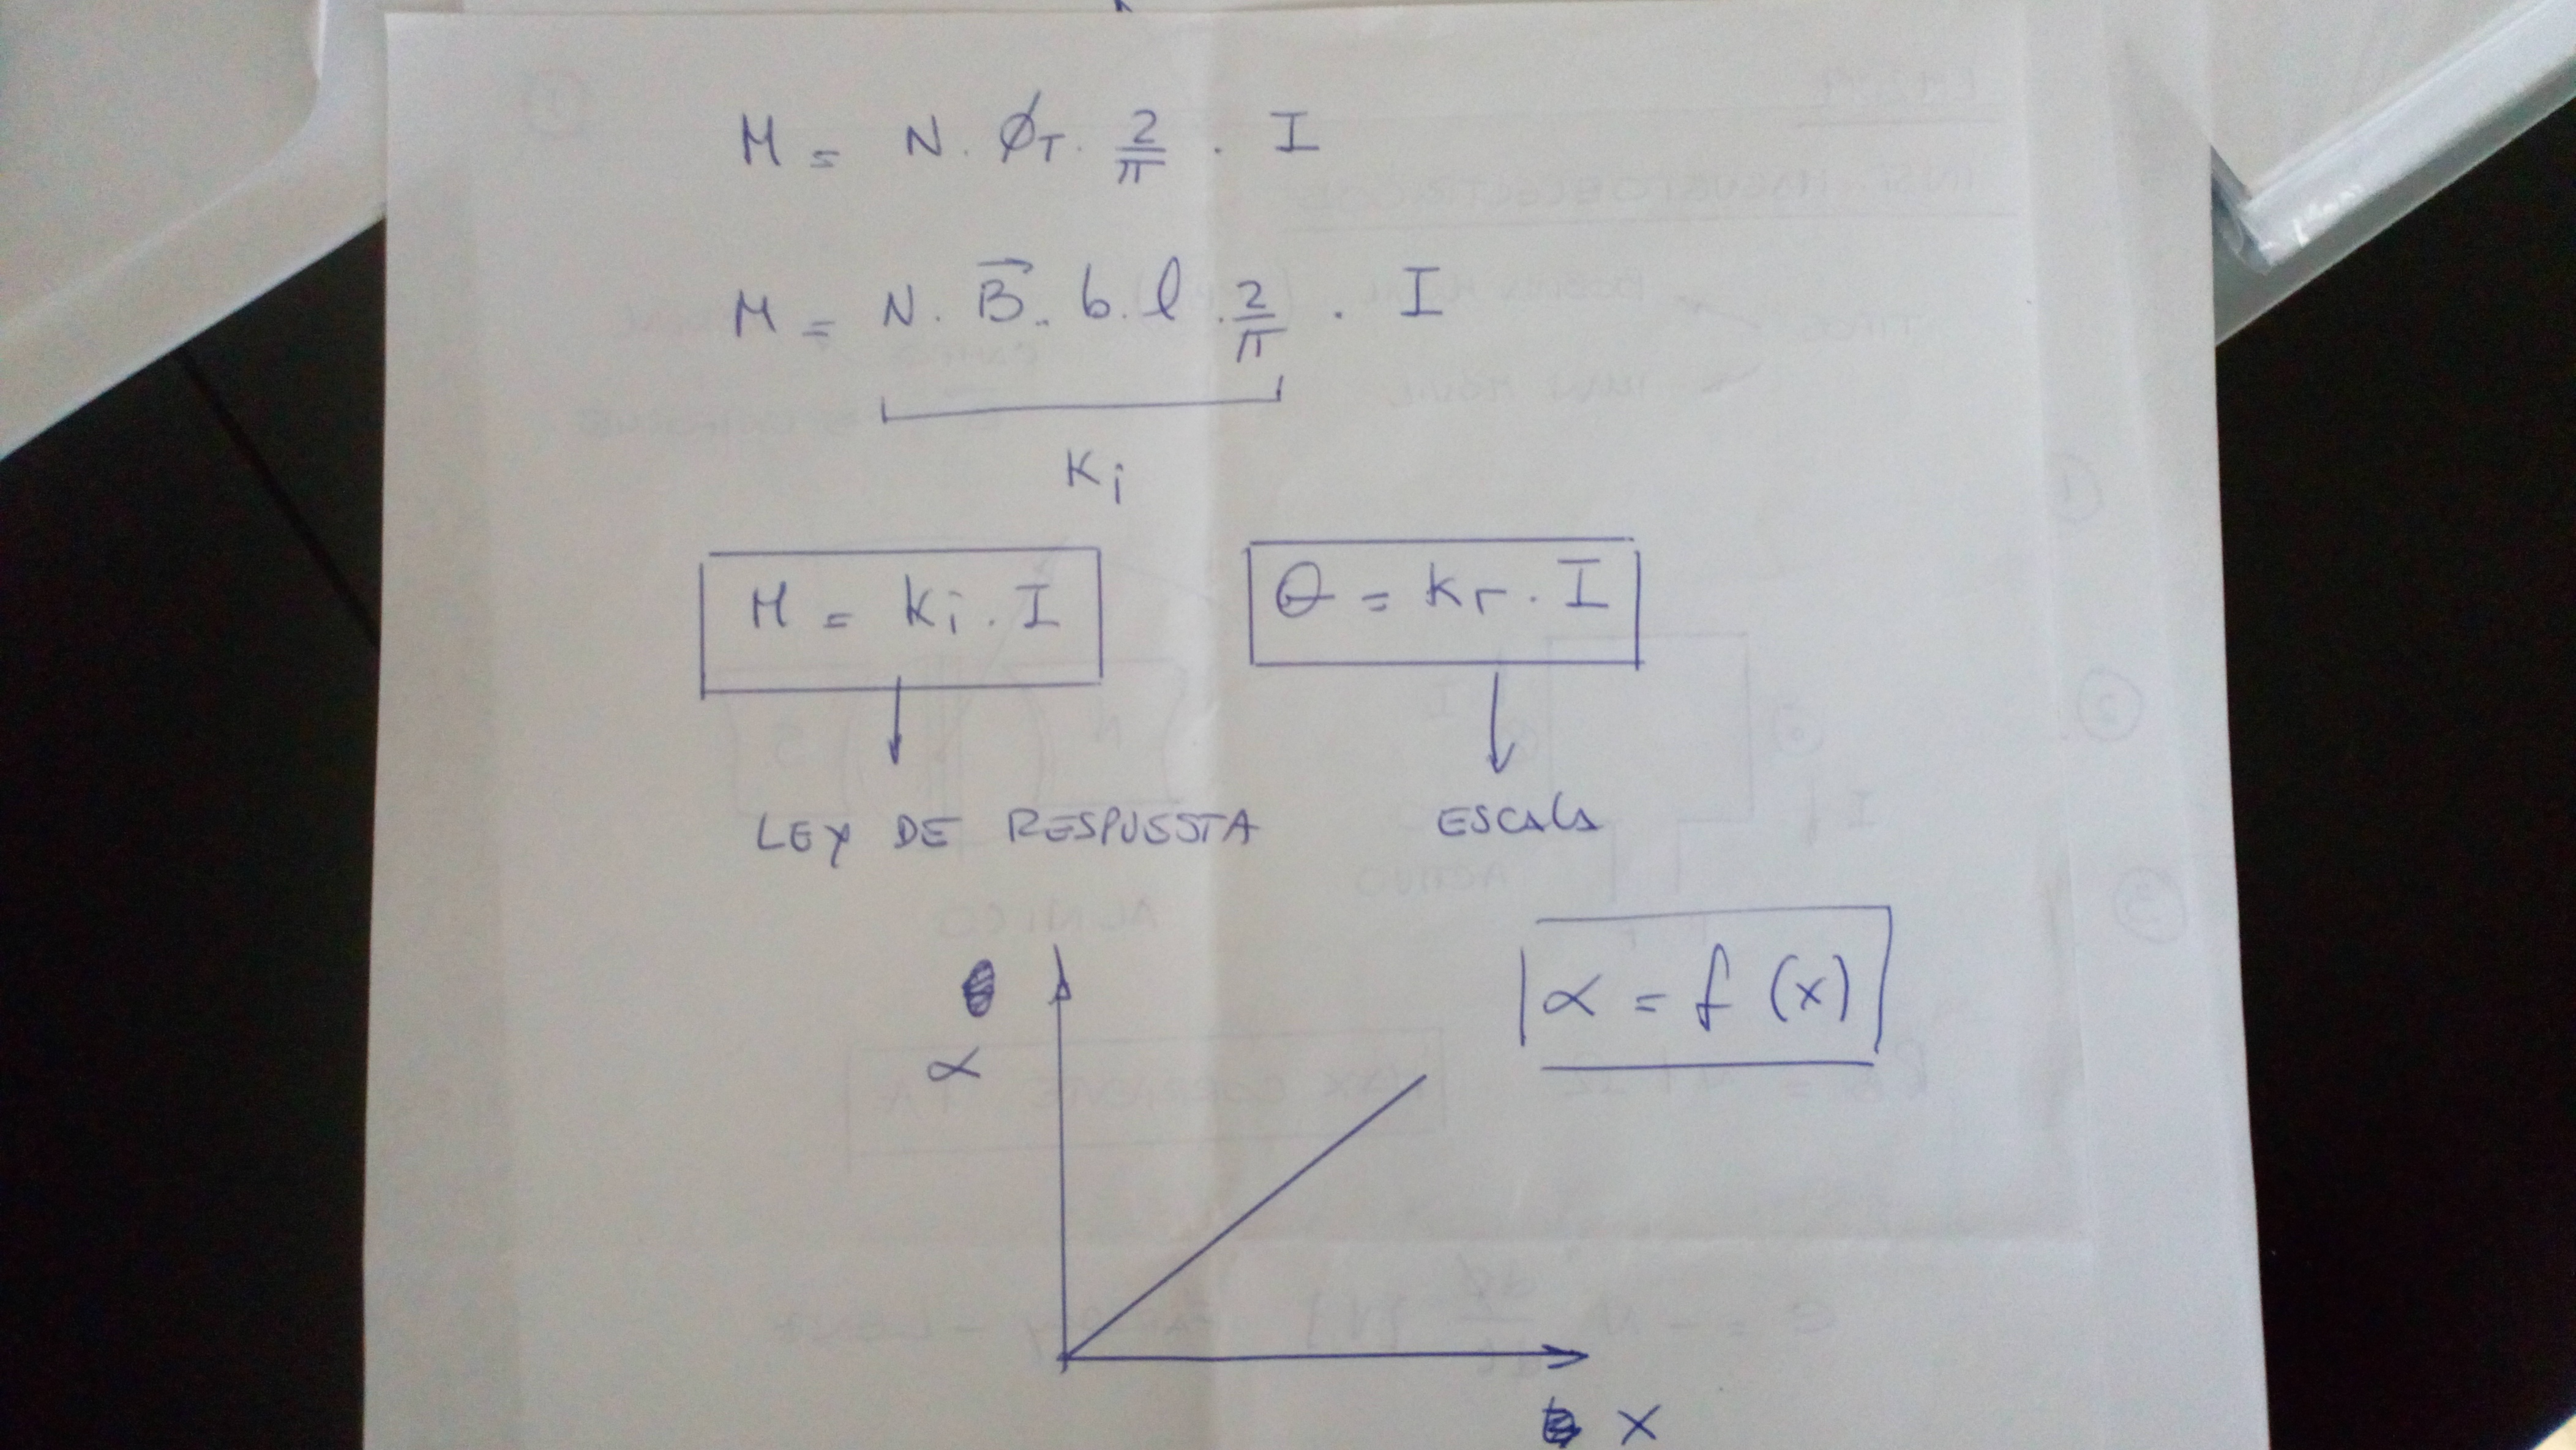 M = N . ϕT . 2/π . I
M = N . B⃗ . b . l . 2/π . I
Ki
M = Ki . I
θ = Kr . I
LEY DE RESPUESTA
ESCALA
α = f (x)
α
x